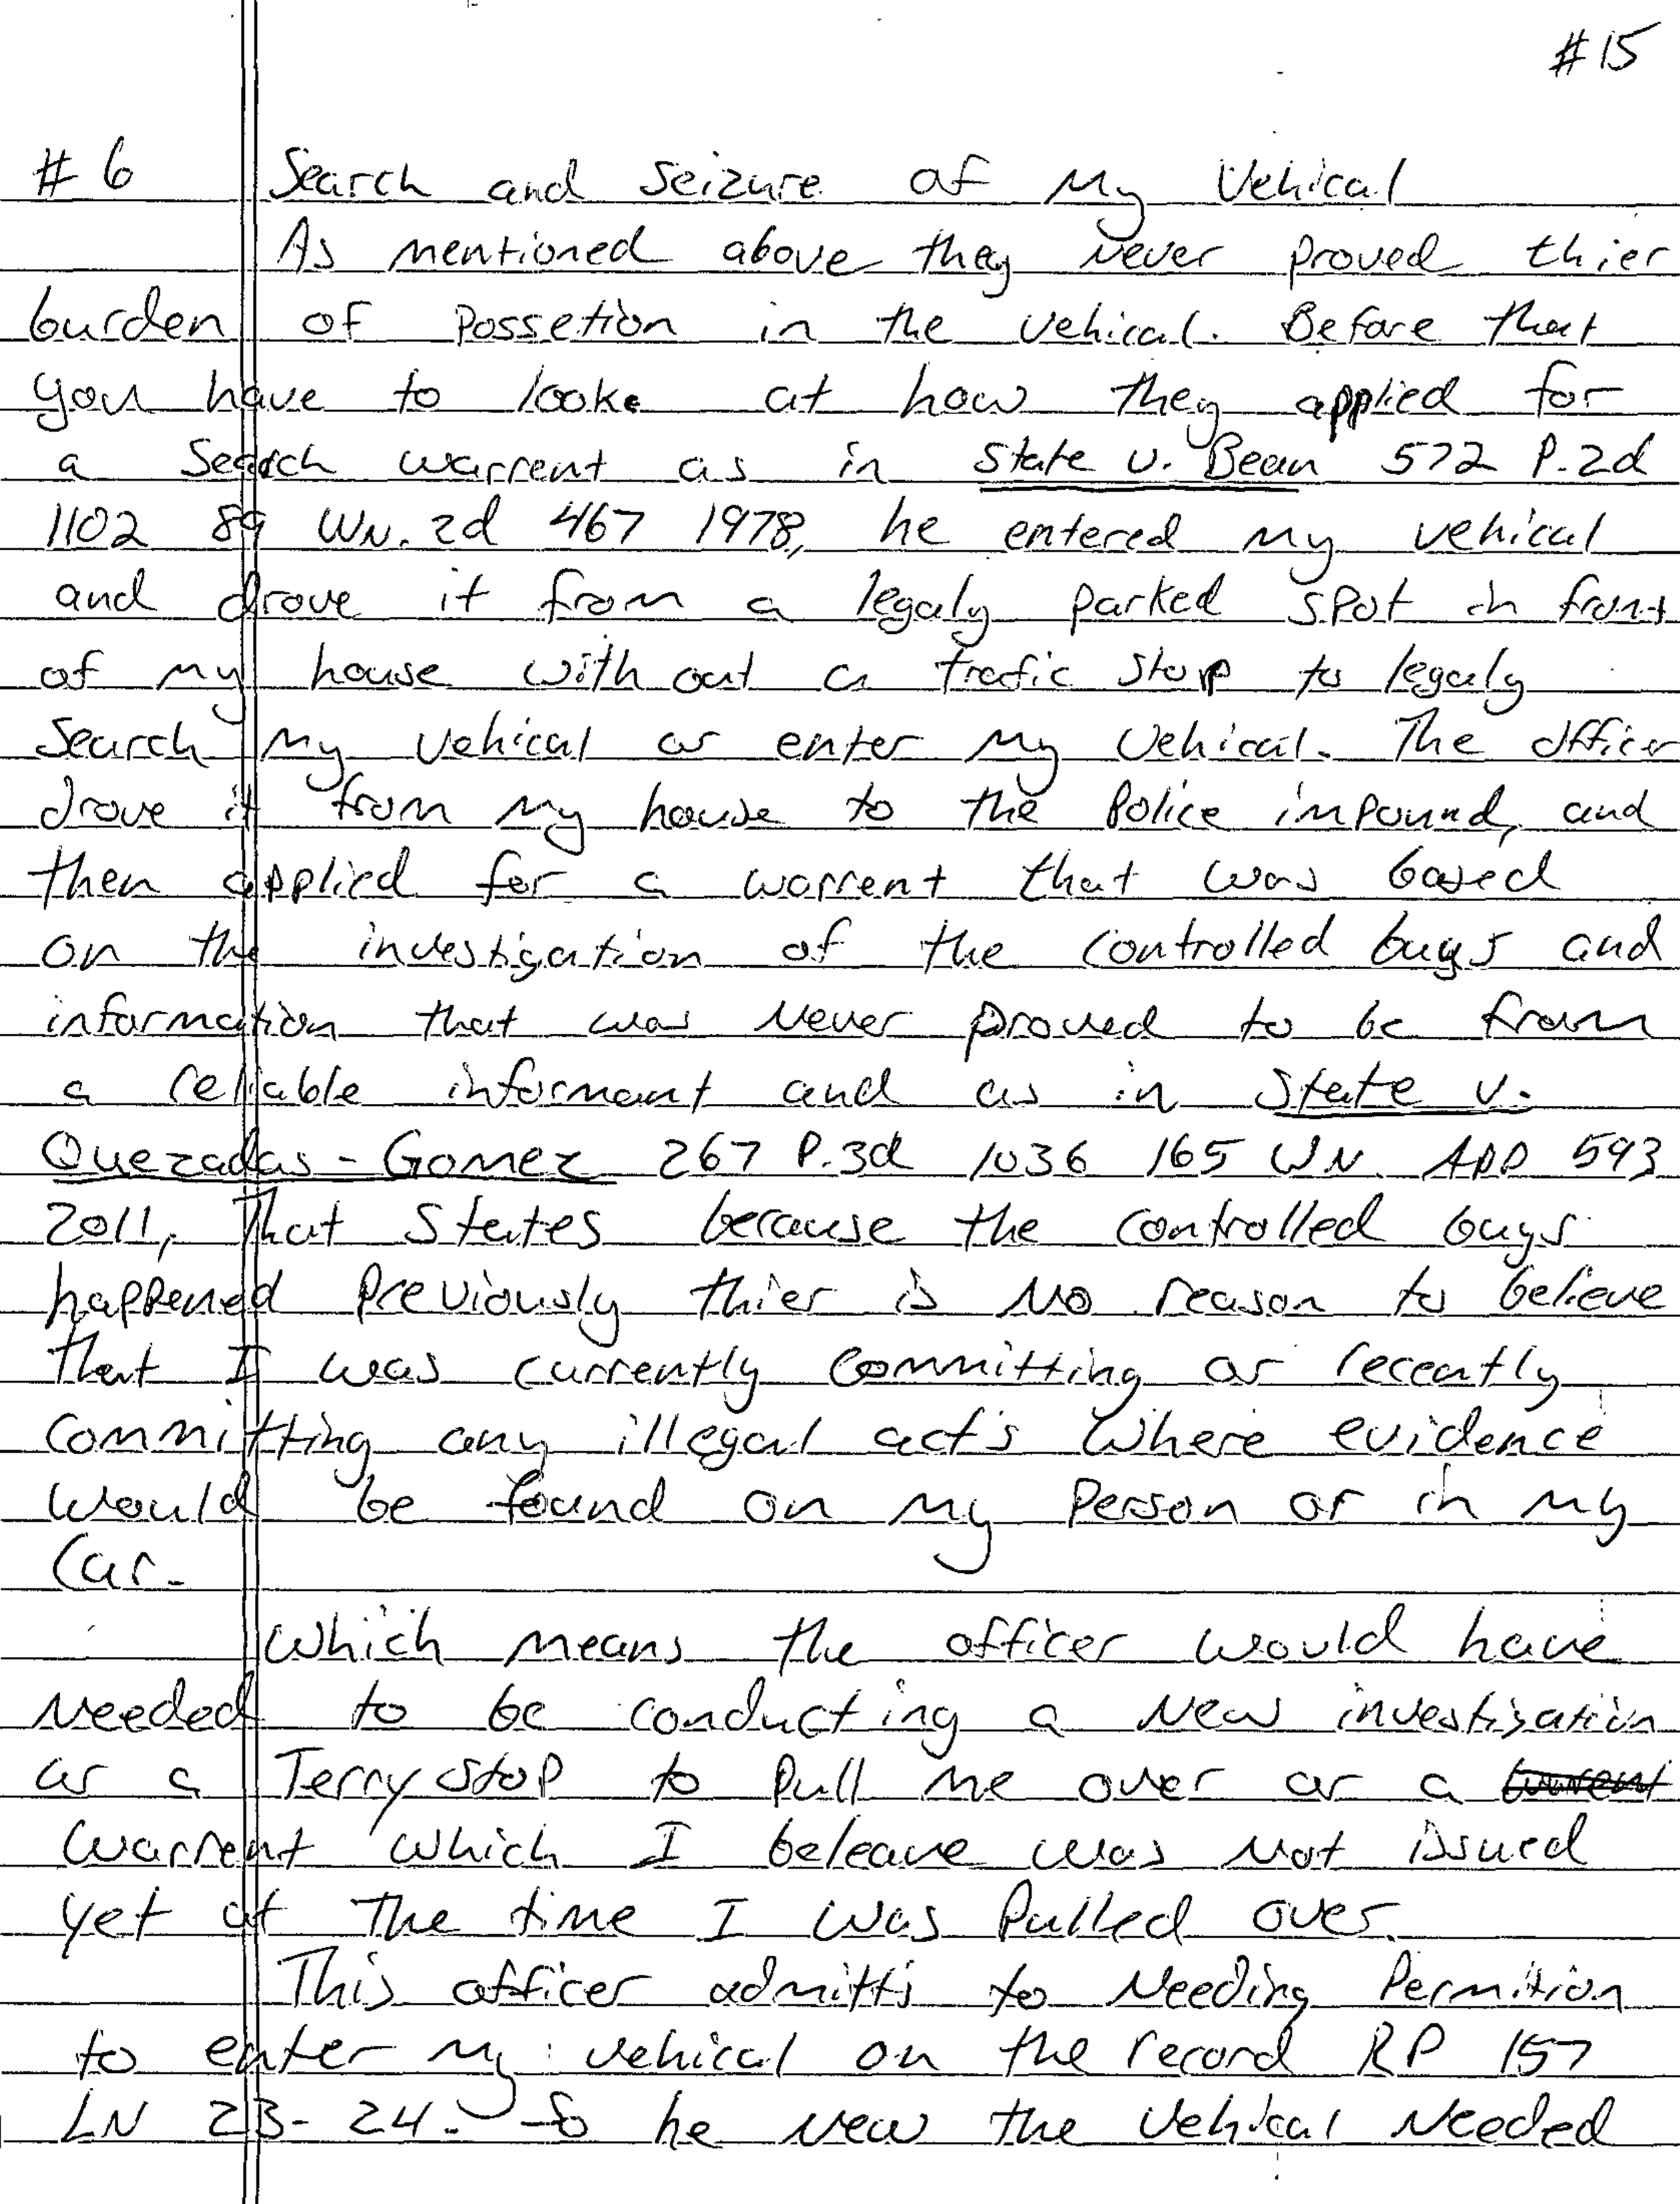 #15
# 6 Search and Seizure of My Vehical
As mentioned above they Never proved thier
burden of Possetion in the vehical. Before that
you have to looke at how they applied for
a Search warrent as in State v. Bean 572 P.2d
1102 89 WN. 2d 467 1978, he entered my vehical
and drove it from a legaly parked spot in front
of my house with out a trafic stop to legaly
Search My vehical or enter My Vehical. The officer
drove it from my house to the Police impound, and
then applied for a warrent that was based
on the investigation of the controlled buys and
information that was Never proved to be from
a reliable informant and as in State v.
Quezadas-Gomez 267 P.3d 1036 165 WN. App 593
2011, That States because the controlled buys
happened Previously thier is No reason to believe
that I was currently committing or recently
committing any illegal act's Where evidence
would be found on my Person or in my
Car.
Which means the officer would have
Needed to be conducting a New investigation
or a Terry stop to Pull me over or a
warrent which I beleave was Not issued
yet at the time I was Pulled over.
This officer admitts to Needing Permition
to enter my vehical on the record RP 157
LN 23-24. So he New the Vehical Needed